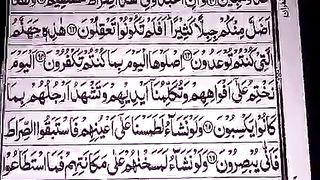 اَضَلَّ مِنْكُمْ جِبِلًّا كَثِيْرًا ؕ اَفَلَمْ تَكُوْنُوْا تَعْقِلُوْنَ ﴿۶۲﴾ هٰذِهٖ جَهَنَّمُ
الَّتِیْ كُنْتُمْ تُوْعَدُوْنَ ﴿۶۳﴾ اِصْلَوْهَا الْیَوْمَ بِمَا كُنْتُمْ تَكْفُرُوْنَ ﴿۶۴﴾ اَلْیَوْمَ
نَخْتِمُ عَلٰۤی اَفْوَاهِهِمْ وَتُكَلِّمُنَاۤ اَیْدِیْهِمْ وَتَشْهَدُ اَرْجُلُهُمْ بِمَا
كَانُوْا یَكْسِبُوْنَ ﴿۶۵﴾ وَلَوْ نَشَآءُ لَطَمَسْنَا عَلٰۤی اَعْیُنِهِمْ فَاسْتَبَقُوا الصِّرَاطَ
فَاَنّٰی یُبْصِرُوْنَ ﴿۶۶﴾ وَلَوْ نَشَآءُ لَمَسَخْنٰهُمْ عَلٰی مَكَانَتِهِمْ فَمَا اسْتَطَاعُوْا